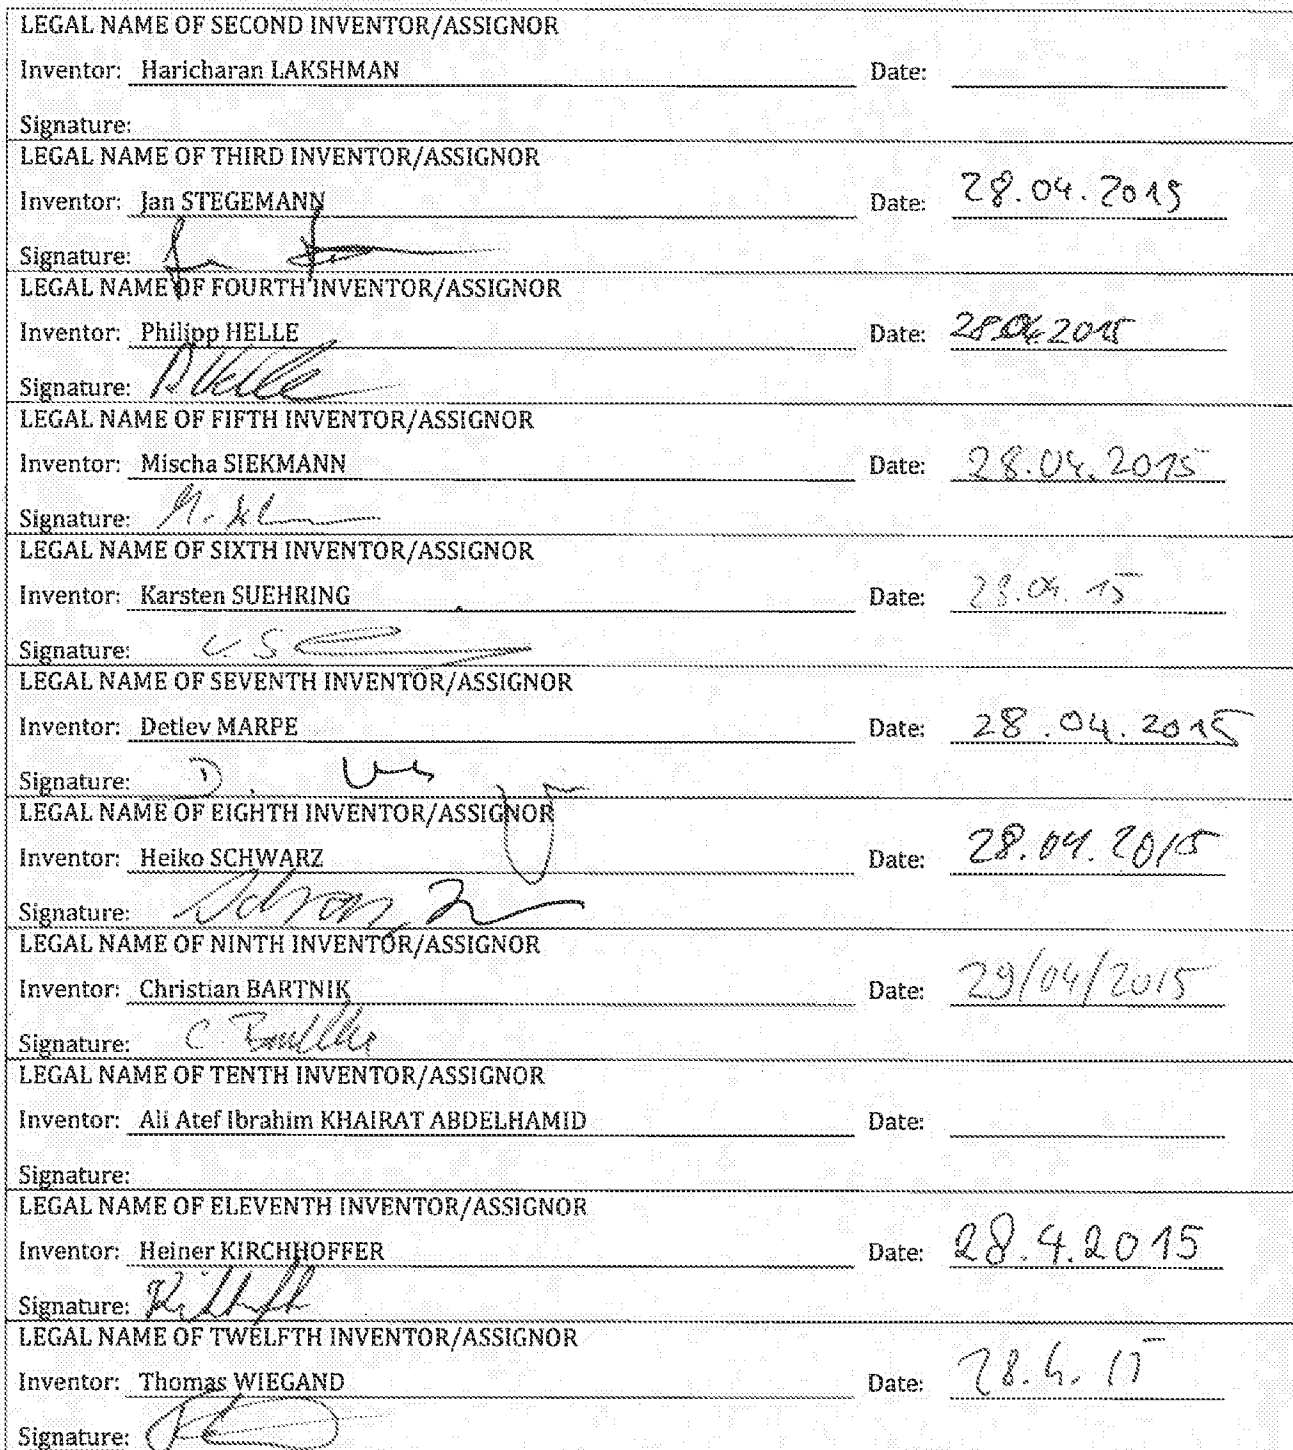 LEGAL NAME OF SECOND INVENTOR/ASSIGNOR
Inventor: Haricharan LAKSHMAN Date:
Signature:
LEGAL NAME OF THIRD INVENTOR/ASSIGNOR
Inventor: Jan STEGEMANN Date: 28.04.2015
Signature:
LEGAL NAME OF FOURTH INVENTOR/ASSIGNOR
Inventor: Philipp HELLE Date: 28.04.2015
Signature: P Helle
LEGAL NAME OF FIFTH INVENTOR/ASSIGNOR
Inventor: Mischa SIEKMANN Date: 28.04.2015
Signature:
LEGAL NAME OF SIXTH INVENTOR/ASSIGNOR
Inventor: Karsten SUEHRING Date: 28.04.15
Signature:
LEGAL NAME OF SEVENTH INVENTOR/ASSIGNOR
Inventor: Detlev MARPE Date: 28.04.2015
Signature: D.
LEGAL NAME OF EIGHTH INVENTOR/ASSIGNOR
Inventor: Heiko SCHWARZ Date: 28.04.2015
Signature:
LEGAL NAME OF NINTH INVENTOR/ASSIGNOR
Inventor: Christian BARTNIK Date: 29/04/2015
Signature: C.
LEGAL NAME OF TENTH INVENTOR/ASSIGNOR
Inventor: Ali Atef Ibrahim KHAIRAT ABDELHAMID Date:
Signature:
LEGAL NAME OF ELEVENTH INVENTOR/ASSIGNOR
Inventor: Heiner KIRCHHOFFER Date: 28.4.2015
Signature:
LEGAL NAME OF TWELFTH INVENTOR/ASSIGNOR
Inventor: Thomas WIEGAND Date: 28.4.15
Signature: